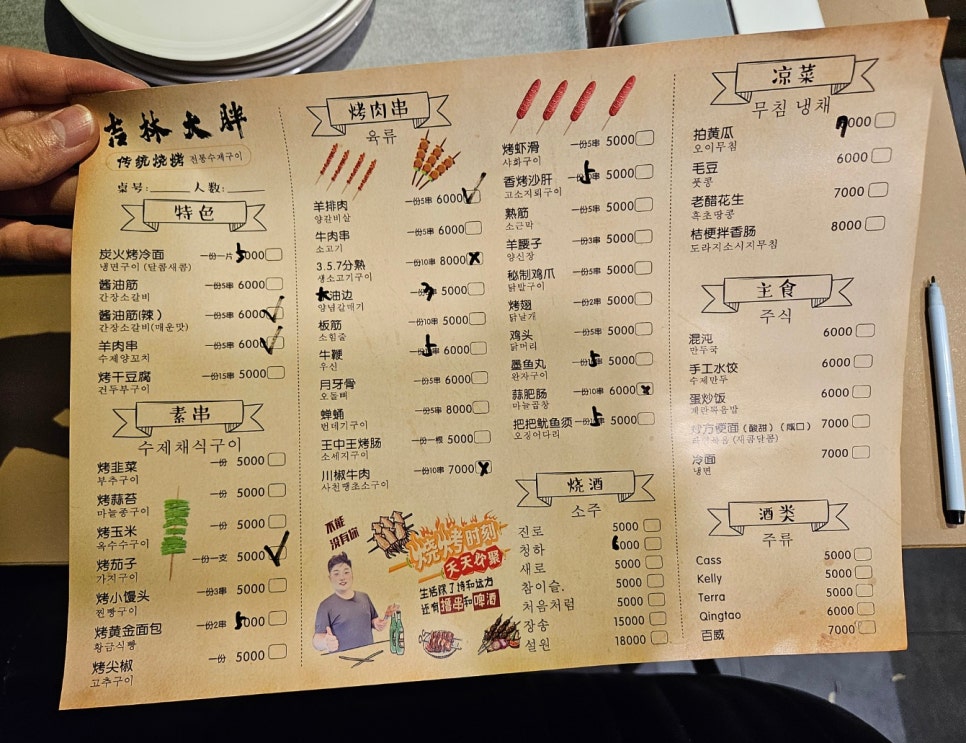 吉林大胖
传统烧烤 전통수제구이
桌号:______ 人数:_____
特色
炭火烤冷面 一份一片 5000
냉면구이 (달콤새콤)
酱油筋 一份5串 6000
간장소갈비
酱油筋(辣) 一份5串 6000
간장소갈비(매운맛)
羊肉串 一份5串 6000
수제양꼬치
烤干豆腐 一份15串 5000
건두부구이
素串
수제채식구이
烤韭菜 一份 5000
부추구이
烤蒜苔 一份 5000
마늘종구이
烤玉米 一份 5000
옥수수구이
烤茄子 一份一支 5000
가지구이
烤小馒头 一份3串 5000
찐빵구이
烤黄金面包 一份2串 5000
황금식빵
烤尖椒 一份 5000
고추구이
烤肉串
육류
羊排肉 一份5串 6000
양갈비살
牛肉串 一份5串 6000
소고기
3.5.7分熟 一份10串 8000
생소고기구이
油边 5000
양념갈매기
板筋 一份10串 5000
소힘줄
牛鞭 6000
우신
月牙骨 一份5串 6000
오돌뼈
蝉蛹 一份5串 8000
번데기구이
王中王烤肠 一份一根 5000
소세지구이
川椒牛肉 一份10串 7000
사천땡초소구이
不能
没有你
烧烤时刻
天天欢聚
生活除了诗和远方
还有撸串和啤酒
烤虾滑 一份5串 5000
샤화구이
香烤沙肝 5000
고소지뢰구이
熟筋 一份5串 5000
소근막
羊腰子 一份3串 5000
양신장
秘制鸡爪 一份5串 5000
닭발구이
烤翅 一份2串 5000
닭날개
鸡头 一份5串 5000
닭머리
墨鱼丸 5000
완자구이
蒜肥肠 一份10串 6000
마늘곱창
把把鱿鱼须 5000
오징어다리
烧酒
소주
진로 5000
청하 6000
새로 5000
참이슬. 5000
처음처럼 5000
장송 15000
설원 18000
凉菜
무침 냉채
拍黄瓜 7000
오이무침
毛豆 6000
풋콩
老醋花生 7000
흑초땅콩
桔梗拌香肠 8000
도라지소시지무침
主食
주식
混沌 6000
만두국
手工水饺 6000
수제만두
蛋炒饭 6000
계란볶음밥
炒方便面(酸甜)(咸口) 7000
(새콤달콤)
冷面 7000
냉면
酒类
주류
Cass 5000
Kelly 5000
Terra 5000
Qingtao 6000
百威 7000